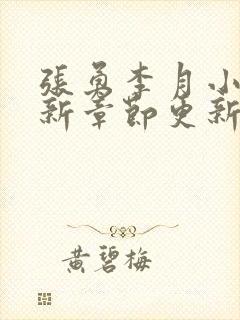 張勇李月小
新章節更新
黄碧梅